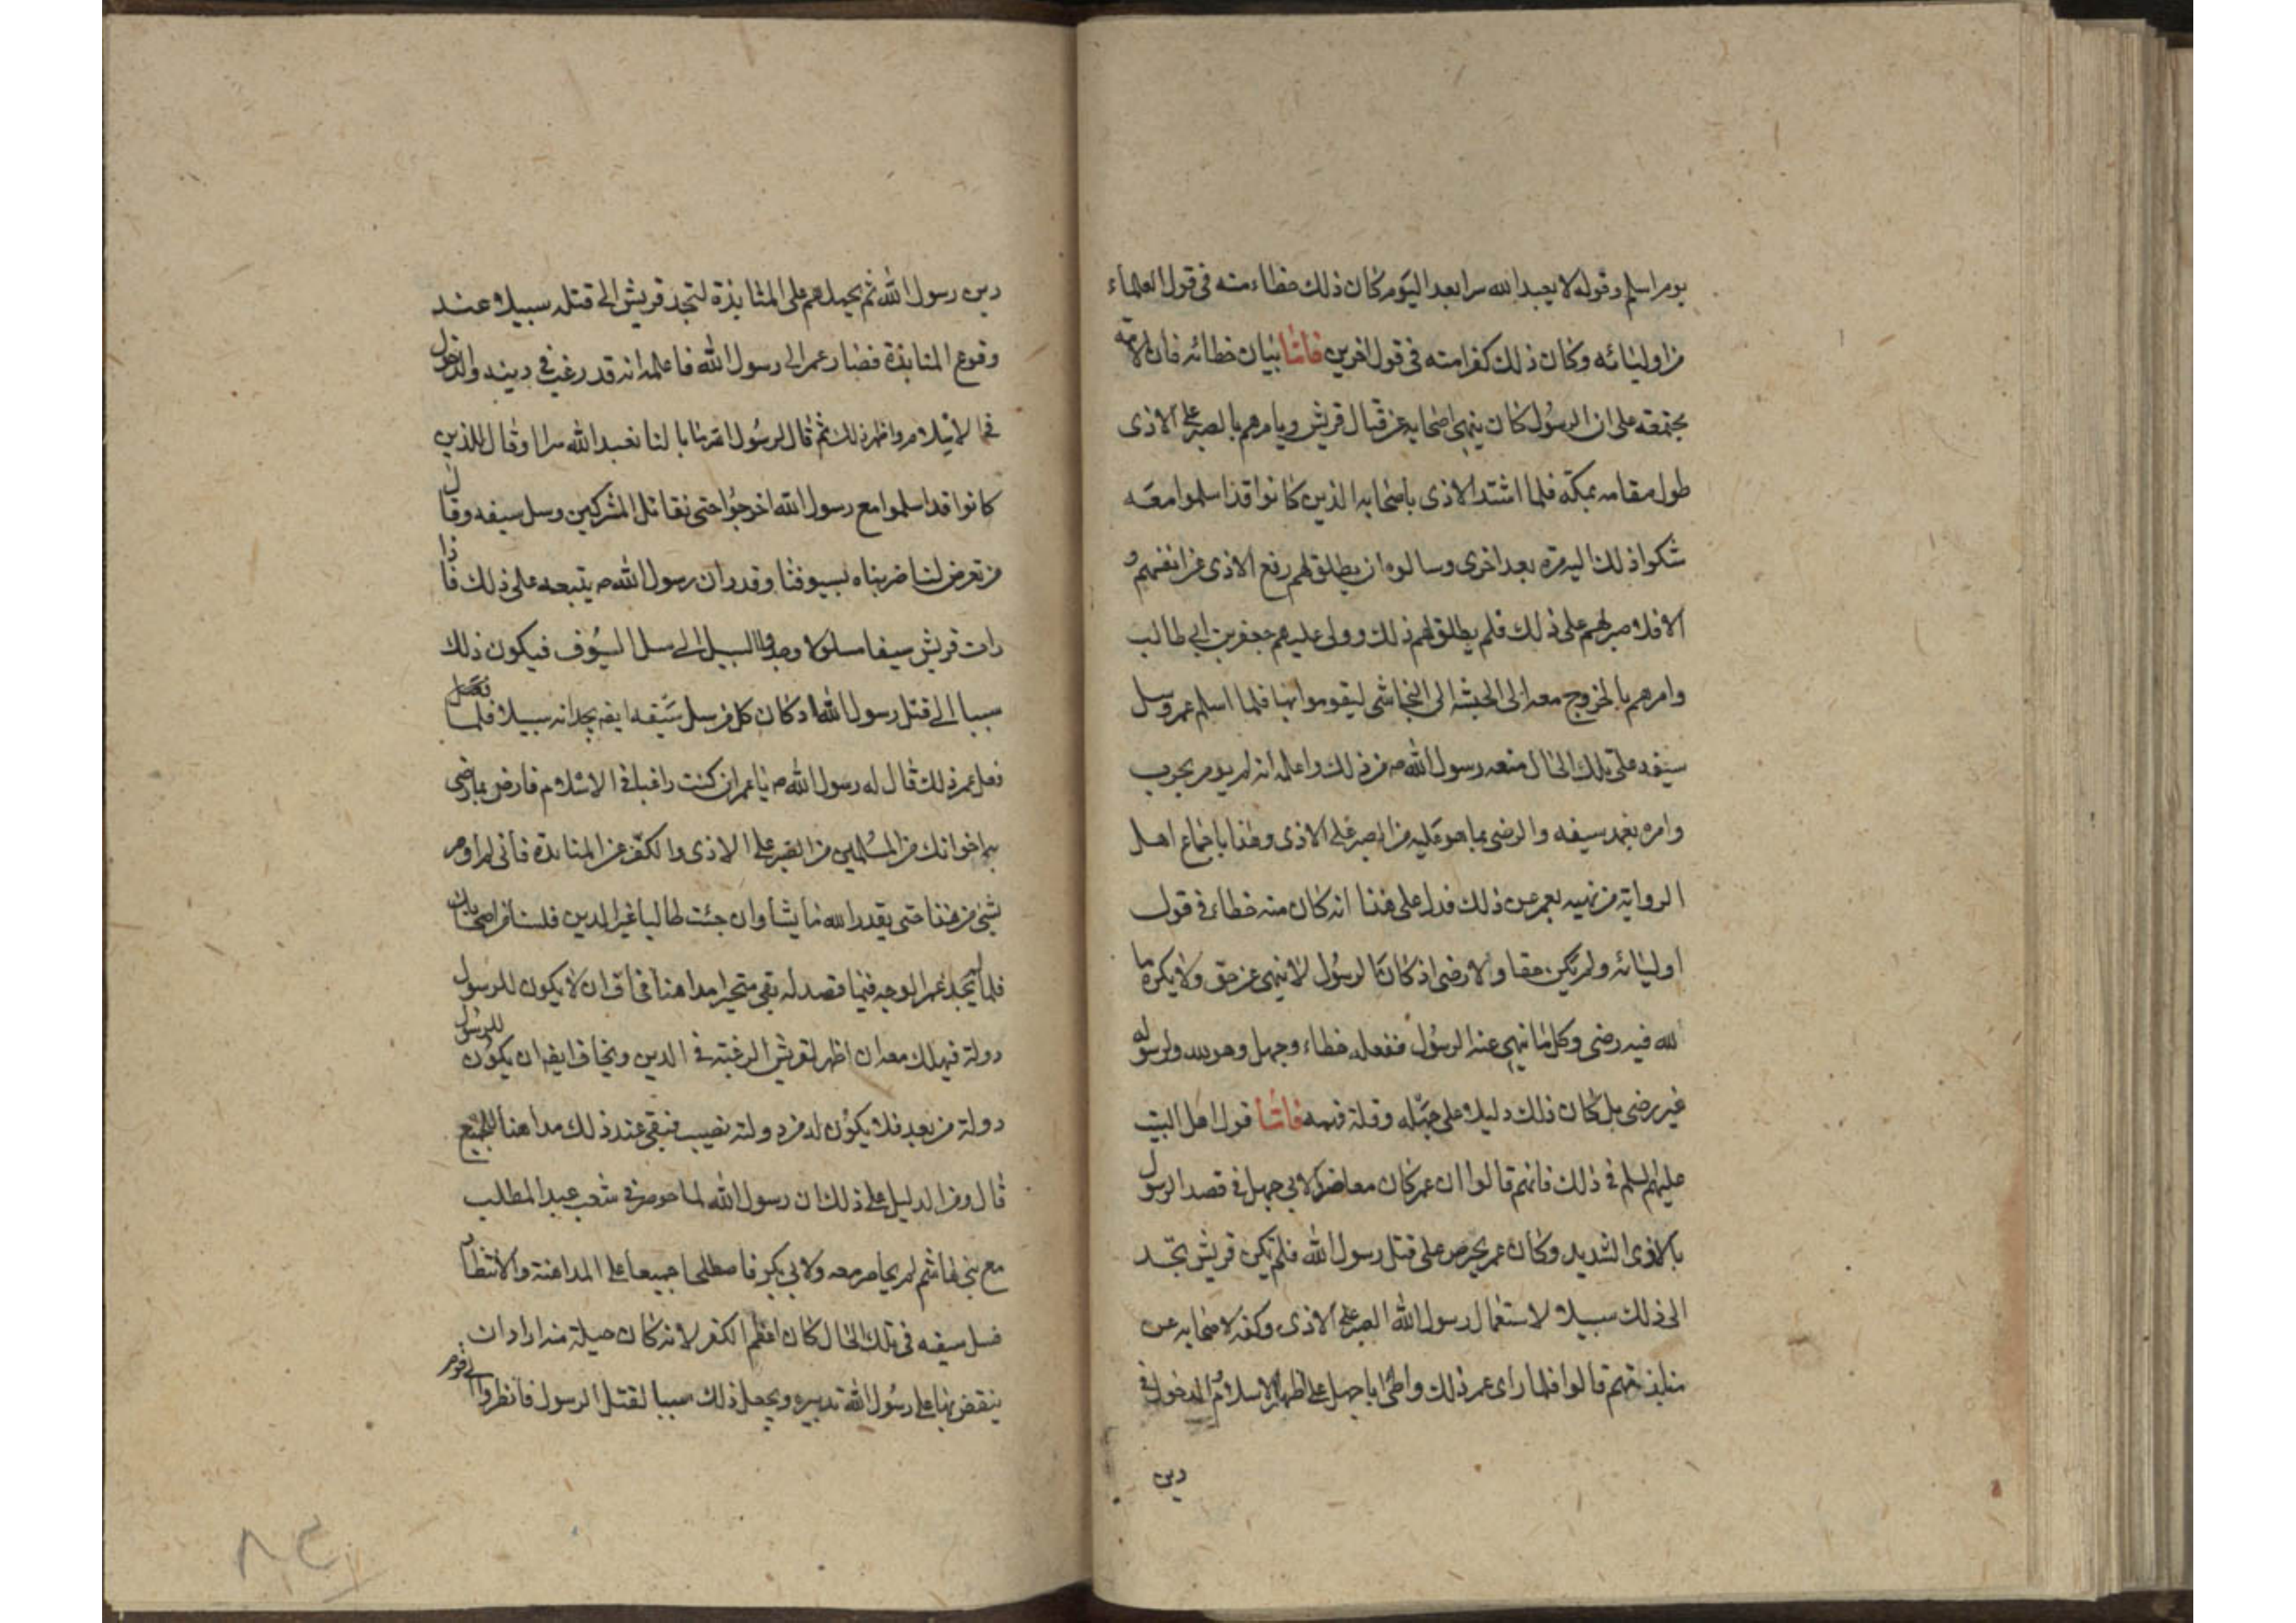 يوم اسلم وقوله لا يعبد الله سرا بعد اليوم كان ذلك خطاء منه فى قول العلماء
من اوليائه وكان ذلك كفرا منه فى قول اخرين فاما بيان خطائه فان الامة
مجتمعة على ان الرسول كان ينهى اصحابه عن قتال قريش ويامرهم بالصبر على الاذى
طول مقامه بمكة فلما اشتد الاذى باصحابه الذين كانوا قد اسلموا معه
شكوا ذلك اليه مرة بعد اخرى وسالوه ان يطلق لهم رفع الاذى عن انفسهم و
الا فلا صبر لهم على ذلك فلم يطلق لهم ذلك وولى عليهم جعفر بن ابى طالب
وامرهم بالخروج معه الى الحبشة الى النجاشى ليقوموا بها فلما اسلم عمر وسل
سيفه على تلك الحال منعه رسول الله ص من ذلك واعلمه انه لم يومر بحرب
وامره بغمد سيفه والرضى بما هو عليه من الصبر على الاذى وهذا باجماع اهل
الرواية من نهيه لعمر عن ذلك فدل على هذا انه كان منه خطاء فى قول
اوليائه ولم يكن حقا ولا رضى اذ كان الرسول لا ينهى عن حق ولا يكره ما
لله فيه رضى وكل ما نهى عنه الرسول ففعله خطاء وجهل وهو لله ولرسوله
غير رضى بل كان ذلك دليلا على جهله وقلة فهمه فاما قول اهل البيت
عليهم السلم فى ذلك فانهم قالوا ان عمر كان معاضدا لابى جهل فى قصد الرسول
بالاذى الشديد وكان عمر يحرص على قتل رسول الله فلم تكن قريش تجد
الى ذلك سبيلا لاستعمال رسول الله الصبر على الاذى وكفه لاصحابه عن
منابذتهم قالوا فلما راى عمر ذلك واطى ابا جهل على اظهار الاسلام والدخول فى
دين
دين رسول الله ثم يحملهم على المنابذة لتجد قريش الى قتله سبيلا عند
وقوع المنابذة فصار عمر الى رسول الله فاعلمه انه قد رغب فى دينه والدخول
فى الاسلام واظهر ذلك ثم قال لرسول الله ما بالنا نعبد الله سرا وقال للذين
كانوا قد اسلموا مع رسول الله اخرجوا حتى نقاتل المشركين وسل سيفه وقال
من تعرض لنا ضربناه بسيوفنا وقدر ان رسول الله ص يتبعه على ذلك فاذا
رات قريش سيفا مسلولا وجدوا السبيل الى سل السيوف فيكون ذلك
سببا الى قتل رسول الله اذ كان كل من سل سيفه يجد انه سبيلا فلما
فعل عمر ذلك قال له رسول الله ص يا عمر ان كنت راغبا فى الاسلام فارض بما رضى
به اخوانك من المسلمين من الصبر على الاذى والكف عن المنابذة فانى لم اومر
بشئ من هذا حتى يقدر الله ما يشا وان جئت طالبا غير الدين فلسنا من اصحابك
فلما لم يجد عمر الوجه فيما قصد له بقى متحيرا مداهنا فخاف ان لا يكون للرسول
دولة فيهلك معه ان اظهر لقريش الرغبة فى الدين ويخاف ايضا ان يكون للرسول
دولة من بعد فلا يكون له فى دولته نصيب فبقى عند ذلك مداهنا للجميع
قال ومن الدليل على ذلك ان رسول الله لما حوصر فى شعب عبد المطلب
مع بنى هاشم لم يحاصر معه ولا ابى بكر فاصطلحا جميعا على المداهنة والانتظار
فسل سيفه فى تلك الحال كان اعظم الكفر لانه كان حيلة منه اراد ان
ينقض بها على رسول الله تدبيره ويجعل ذلك سببا لقتل الرسول فانظروا الى قوم